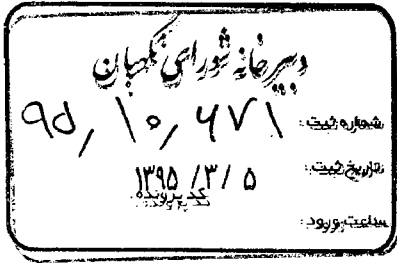 دبیرخانه شورای نگهبان
شماره ثبت: ۹۵/۱۰/۶۷۱
تاریخ ثبت: ۱۳۹۵/۳/۵
کد پرونده:
ساعت ورود: